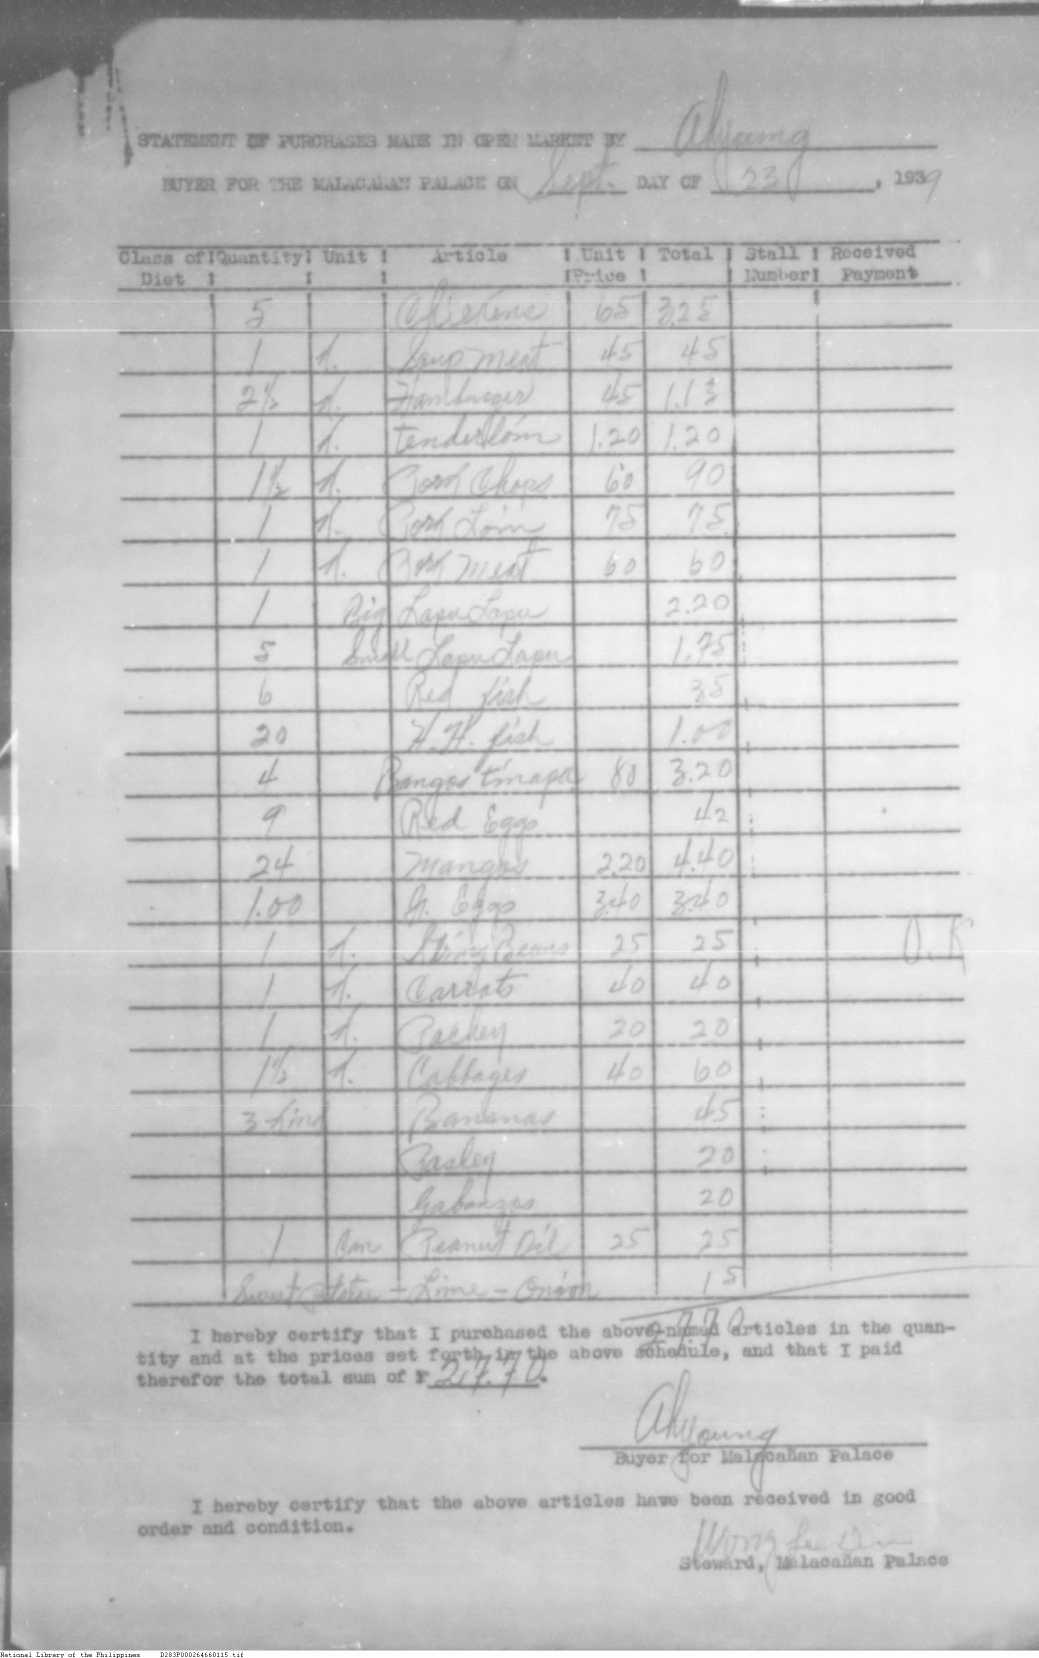 STATEMENT OF PURCHASES MADE IN OPEN MARKET BY Ahyoung
BUYER FOR THE MALACAÑAN PALACE ON Sept. DAY OF 23, 1939
Class of Diet Quantity Unit Article Unit Price Total Stall Number Received Payment
5 Chickens 65 3.25
1 k. Soup meat 45 45
2 1/2 k. Hamburger 45 1.13
1 k. tenderloin 1.20 1.20
1 1/2 k. Pork Chops 60 90
1 k. Pork Loin 75 75
1 k. Pork meat 60 60
1 Big Lapu Lapu 2.20
5 Small Lapu Lapu 1.75
6 Red fish 35
20 H.H. fish 1.00
4 Bangos tinapa 80 3.20
9 Red Eggs 42
24 Mangos 2.20 4.40
1.00 Eggs 3.40 3.40
1 k. String Beans 25 25 O.K
1 k. Carrots 40 40
1 k. 20 20
1 1/2 k. Cabbages 40 60
3 Bananas 45
Pasley 20
Gabanzos 20
1 Can Peanut Oil 25 25
Sweet – Lime – Onion 15
27.70
I hereby certify that I purchased the above-named articles in the quan-
tity and at the prices set forth in the above schedule, and that I paid
therefor the total sum of ₱ 27.70.
Ahyoung
Buyer for Malacañan Palace
I hereby certify that the above articles have been received in good
order and condition.
Wong
Steward, Malacañan Palace
National Library of the Philippines D283P000264660115.tif